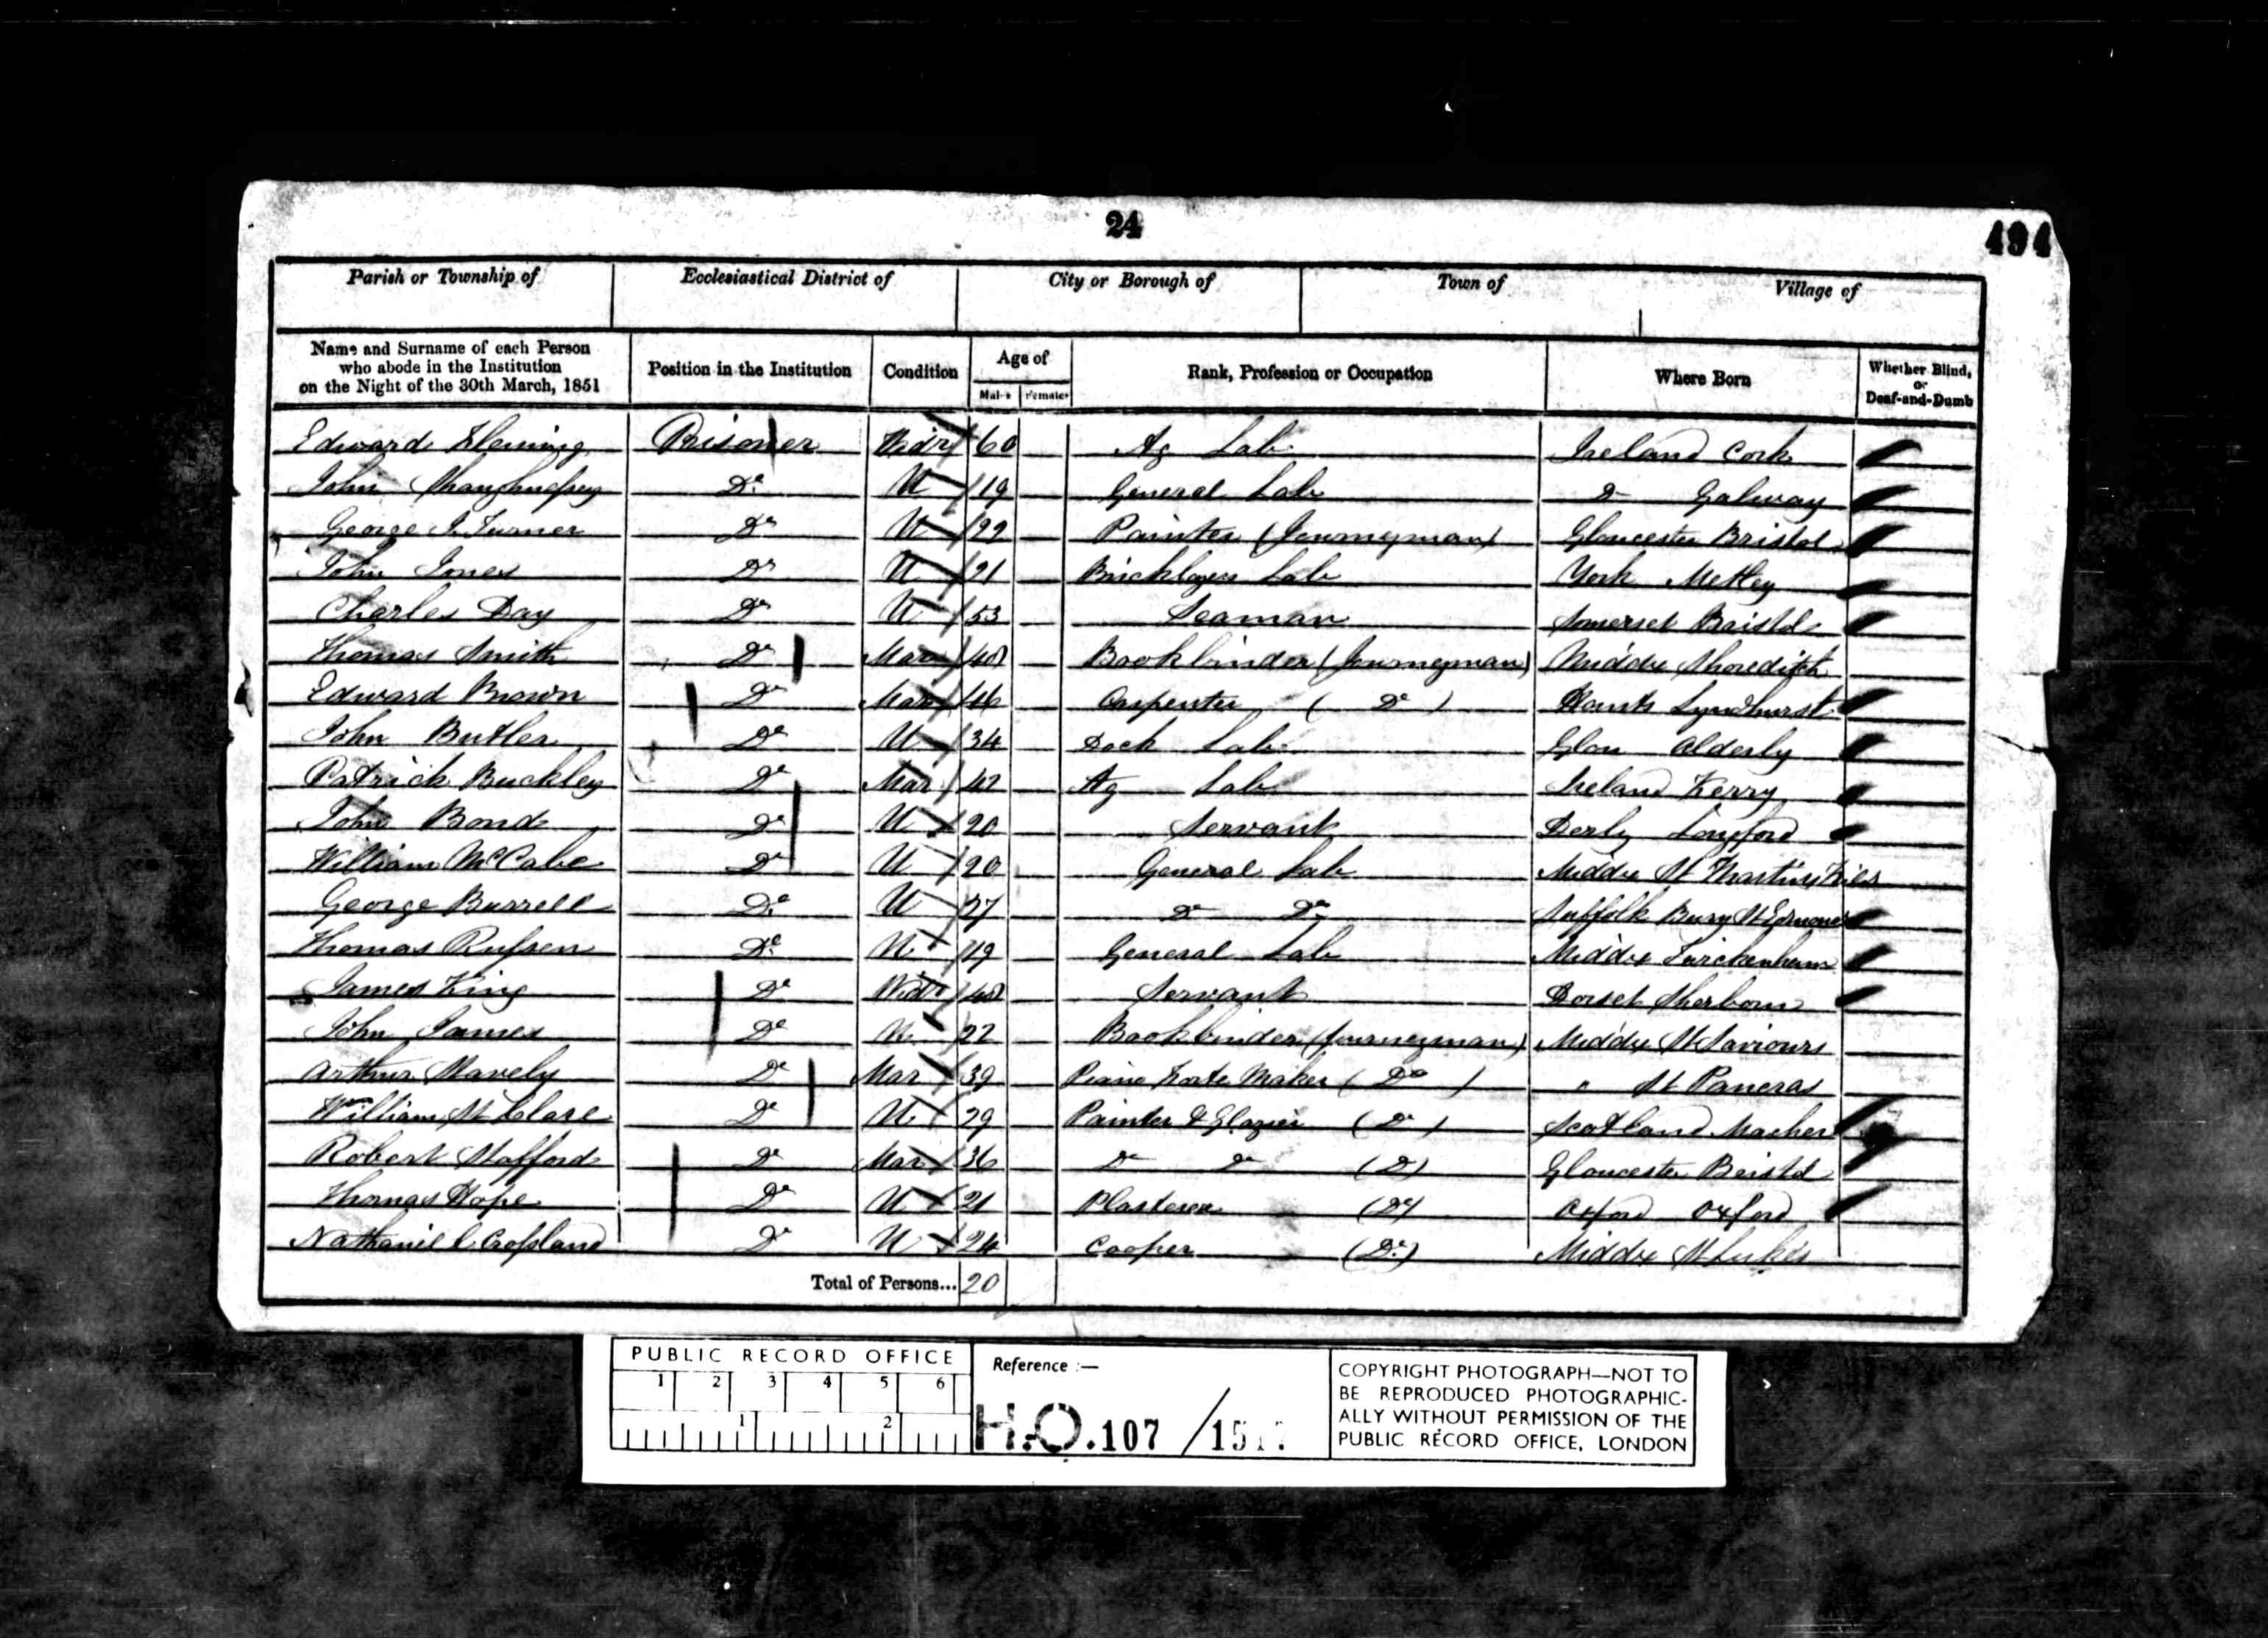 24
494
Parish or Township of Ecclesiastical District of City or Borough of Town of Village of
Name and Surname of each Person who abode in the Institution on the Night of the 30th March, 1851 Position in the Institution Condition Age of Males Females Rank, Profession or Occupation Where Born Whether Blind, or Deaf-and-Dumb
Edward Fleming Prisoner Widr 60 Ag Lab Ireland Cork
John Do U 19 General Lab Do Galway
George J. Turner Do U 22 Painter (Journeyman) Gloucester Bristol
John Jones Do U 21 Bricklayers Lab York
Charles Day Do U 53 Seaman Somerset Bristol
Thomas Smith Do Mar 40 Bookbinder (Journeyman) Middx Shoreditch
Edward Brown Do Mar 46 Carpenter (Do) Hants Lyndhurst
John Butler Do U 34 Dock Lab Glou Alderly
Patrick Buckley Do Mar 42 Ag Lab Ireland Kerry
John Bond Do U 20 Servant Derby Longford
William McCabe Do U 20 General Lab Middx St Martins
George Burrell Do U 27 Do Do Suffolk Bury St Edmunds
Thomas Do U 19 General Lab Middx Twickenham
James King Do Widr 40 Servant Dorset Sherborn
John James Do U 22 Bookbinder (Journeyman) Middx St Saviours
Arthur Stavely Do Mar 39 Piano Forte Maker (Do) " St Pancras
William St Clare Do U 29 Painter & Glazier (Do) Scotland
Robert Stafford Do Mar 36 Do Do (Do) Gloucester Bristol
Thomas Hope Do U 21 Plasterer (Do) Oxford Oxford
Nathaniel Crofsland Do U 24 Cooper (Do) Middx St Lukes
Total of Persons... 20
PUBLIC RECORD OFFICE
1 2 3 4 5 6
1 2
Reference :—
H.O. 107 /
COPYRIGHT PHOTOGRAPH—NOT TO
BE REPRODUCED PHOTOGRAPHIC-
ALLY WITHOUT PERMISSION OF THE
PUBLIC RECORD OFFICE, LONDON